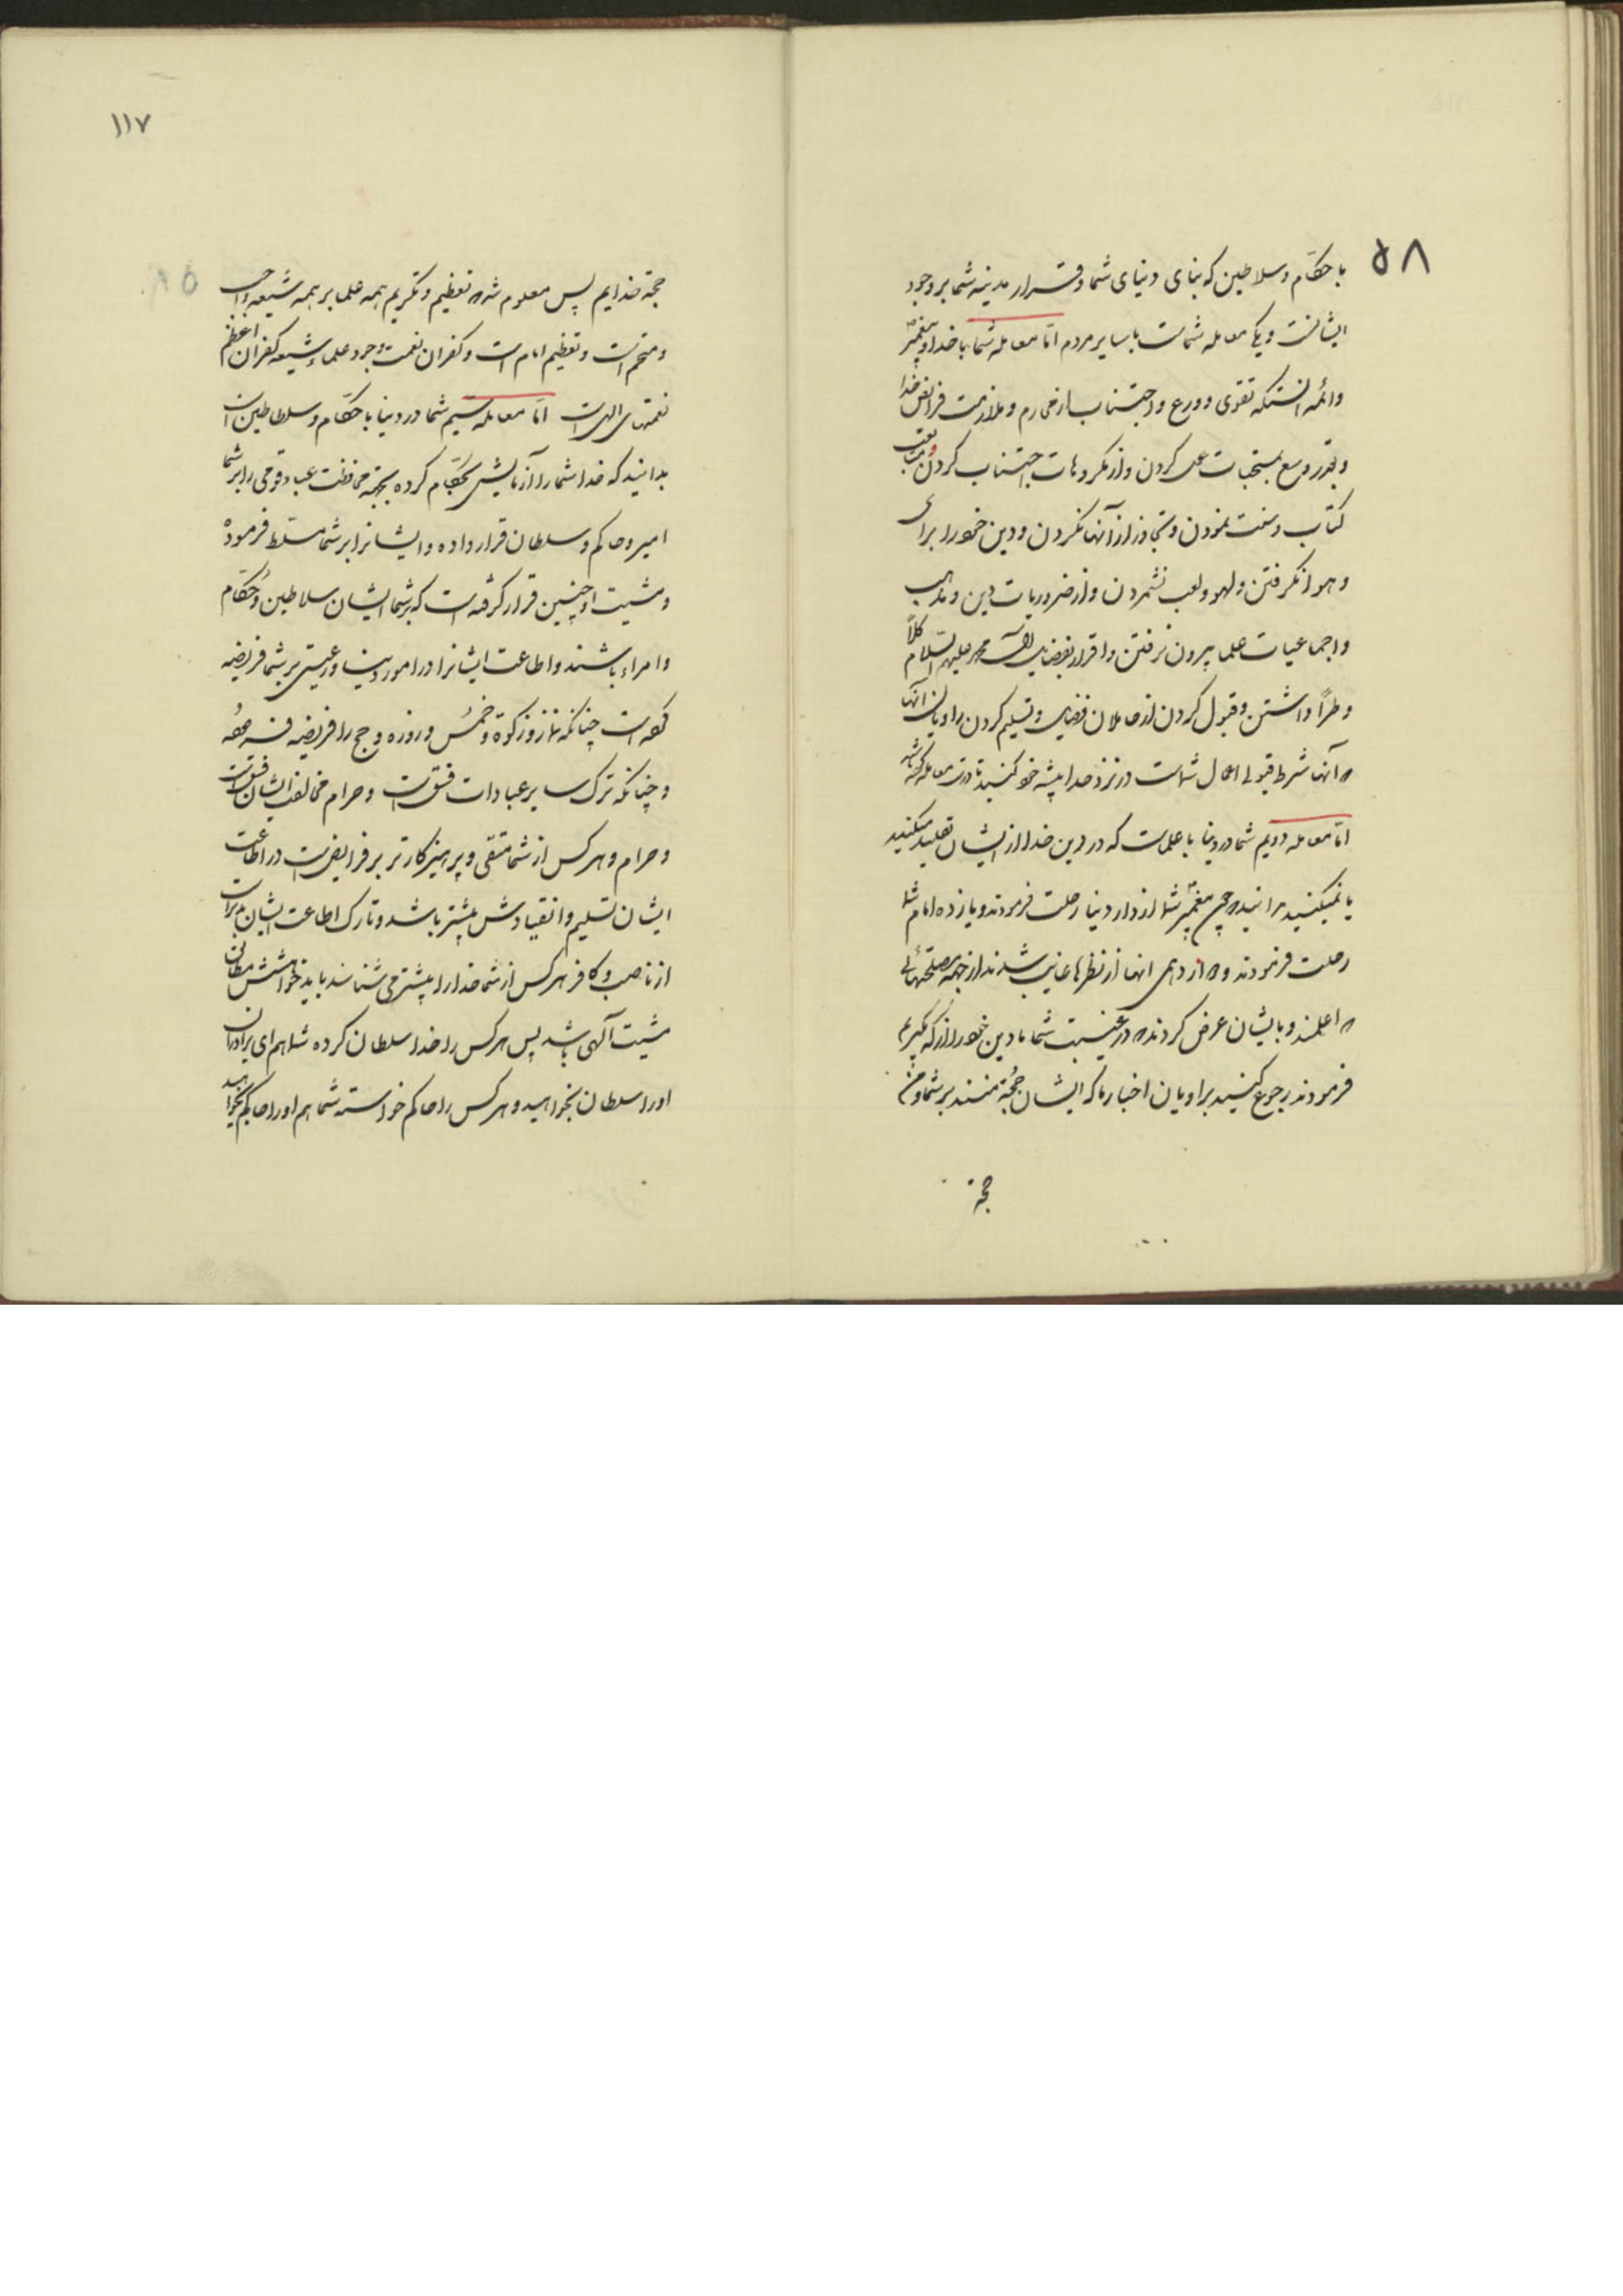 ۵۸
با حکّام و سلاطین که بنای دنیای شما و قرار مدینه شما بر وجود
ایشانست و یک معامله شماست با سایر مردم امّا معامله شما با خدا و پیغمبر
و ائمه آنستکه تقوی و ورع و اجتناب از محارم و ملازمت فرایض خدا
و بقدر وسع بمستحبات عمل کردن و از مکروهات اجتناب کردن و متابعت
کتاب و سنت نمودن و تجاوز از آنها نکردن و دین خود را برای
و هوا نگرفتن و لهو و لعب نشمردن و از ضروریات دین و مذهب
و اجماعیات علما بیرون نرفتن و اقرار بفضایل آل محمد علیهم السّلام کلاً
و طراً داشتن و قبول کردن از حاملان فضایل و تسلیم کردن راویان آنها
که آنها شرط قبولی اعمال شماست در نزد خدا پیشه خود کنید تا درست معامله کرده باشید
امّا معامله دویم شما در دنیا با علماست که در دین خدا از ایشان تقلید میکنید
یا نمیکنید بدانید که چون پیغمبر شما از دار دنیا رحلت فرمودند و یازده امام شما
رحلت فرمودند و دوازدهمی آنها از نظرها غایب شدند از جهة مصلحتهائی
که اعلمند و بایشان عرض کردند که در غیبت شما ما دین خود را از که بگیریم
فرمودند رجوع کنید براویان اخبار ما که ایشان حجّة منند بر شما و من
حجة
۱۱۷
حجّة خدایم پس معلوم شد که تعظیم و تکریم همه علما بر همه شیعه واجب
و متحتم است و تعظیم امام است و کفران نعمت وجود علماء شیعه کفران اعظم
نعمتهای الهی است امّا معامله سیم شما در دنیا با حکّام و سلاطین است
بدانید که خدا شما را آزمایش بحکّام کرده بجهة محافظت عباد و قومی را بر شما
امیر و حاکم و سلطان قرار داده و ایشانرا بر شما مسلّط فرموده
و مشیت او چنین قرار گرفته است که بر شما ایشان سلاطین و حکّام
و امراء باشند و اطاعت ایشانرا در امور دنیا و رعیتی بر شما فریضه
کرده است چنانکه نماز و زکوة و خمس و روزه و حج را فریضه فرموده
و چنانکه ترک سایر عبادات فسق است و حرام مخالفت ایشان فسق است
و حرام و هر کس از شما متقی و پرهیزکارتر بر فرایض است در اطاعت
ایشان تسلیم و انقیادش بیشتر باشد و تارک اطاعت ایشان بدتر است
از ناصب و کافر هر کس از شما خدا را بیشتر می شناسد باید خواهشش مطابق
مشیت آلهی باشد پس هر کس را خدا سلطان کرده شما هم ای برادران
او را سلطان بخواهید و هر کس را حاکم خواسته شما هم او را حاکم بخواهید